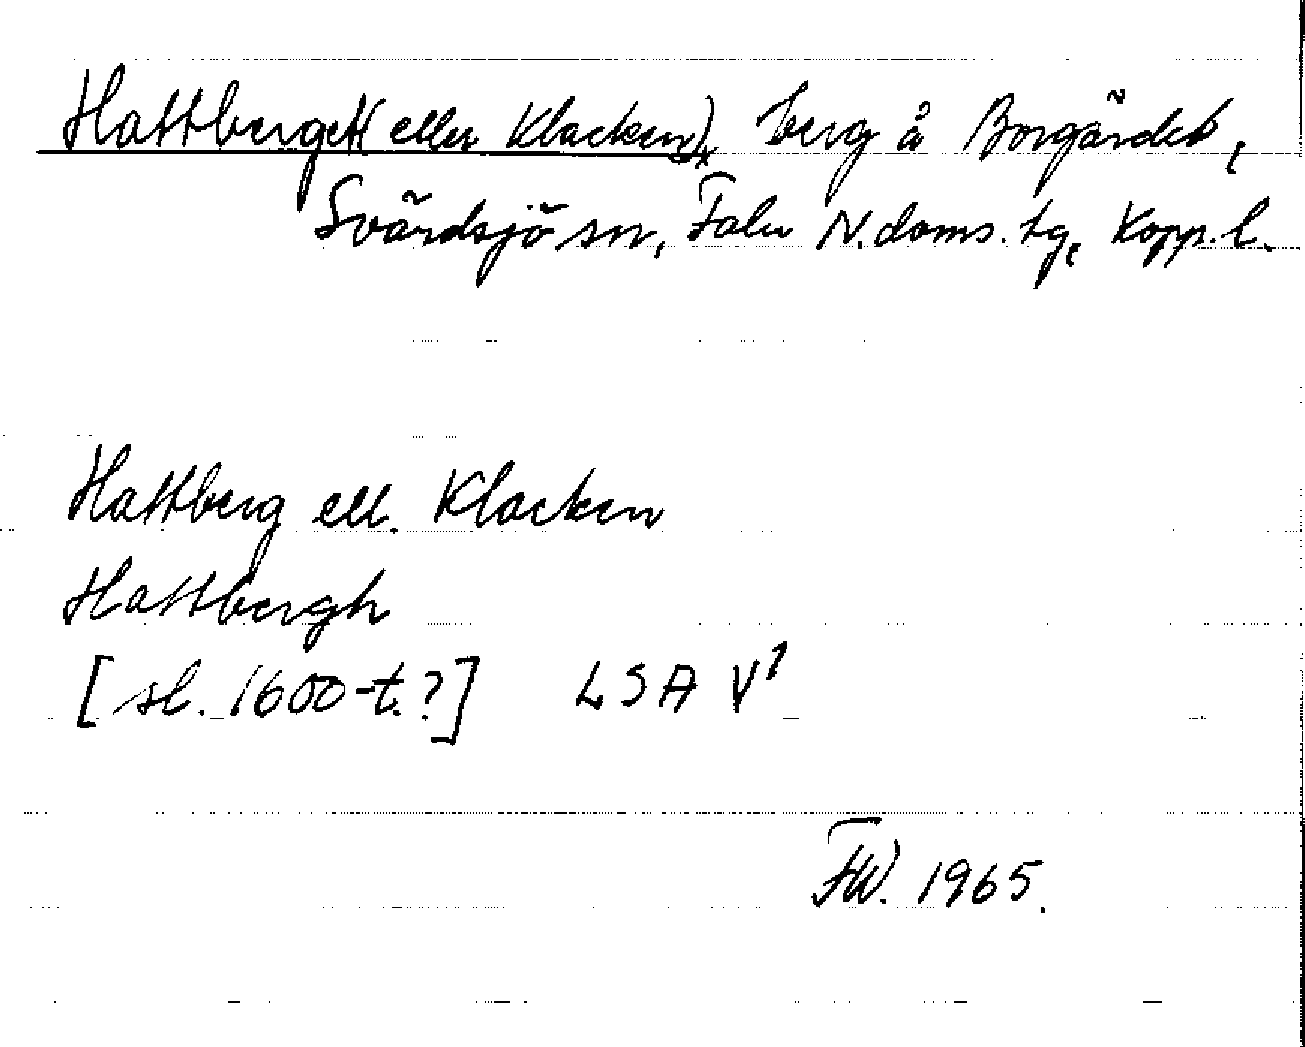 Hattberget (eller Klacken)x berg å Borgärdet,
Svärdsjö sn, Falu N. doms. tg, Kopp. l.
Hattberg ell. Klacken
Hattbergh
[sl. 1600-t.?] LSA V1
FW. 1965.